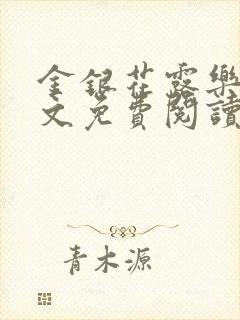 金銀花露樂
文免費閱讀
青木源